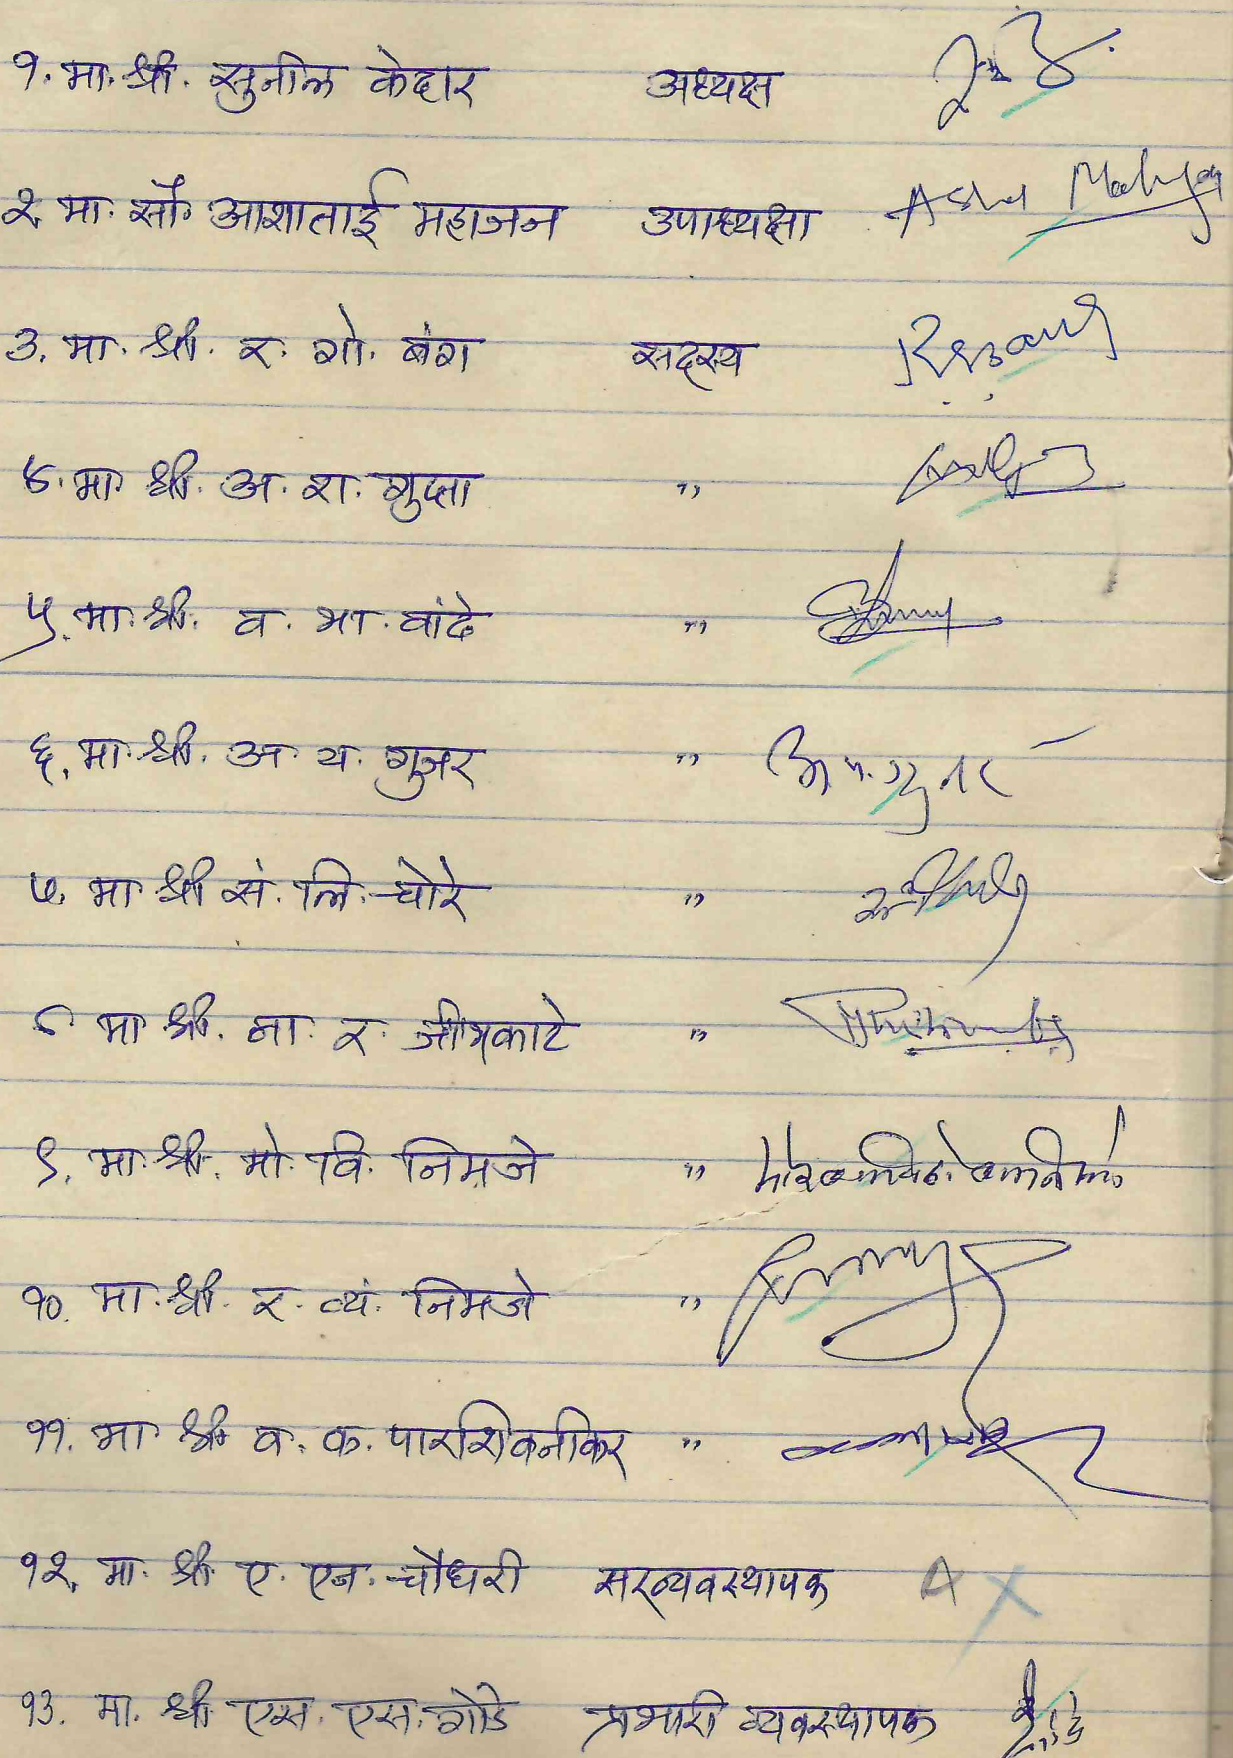 १. मा. श्री. सुनील केदार अध्यक्ष
२. मा. सौ. आशाताई महाजन उपाध्यक्षा Asha
३. मा. श्री. र. गो. बंग सदस्य
४. मा. श्री. अ. रा. गुप्ता "
५. मा. श्री. व. भा. वांदे "
६. मा. श्री. अ. य. गुजर "
७. मा. श्री सं. लि. घोरे "
८ मा. श्री. ना. र. जीभकाटे "
९. मा. श्री. मो. वि. निमजे "
१०. मा. श्री. र. व्यं. निमजे "
११. मा. श्री. व. क. पारशिवनीकर "
१२. मा. श्री. ए. एन. चौधरी सरव्यवस्थापक A
१३. मा. श्री एस. एस. गोडे प्रभारी व्यवस्थापक